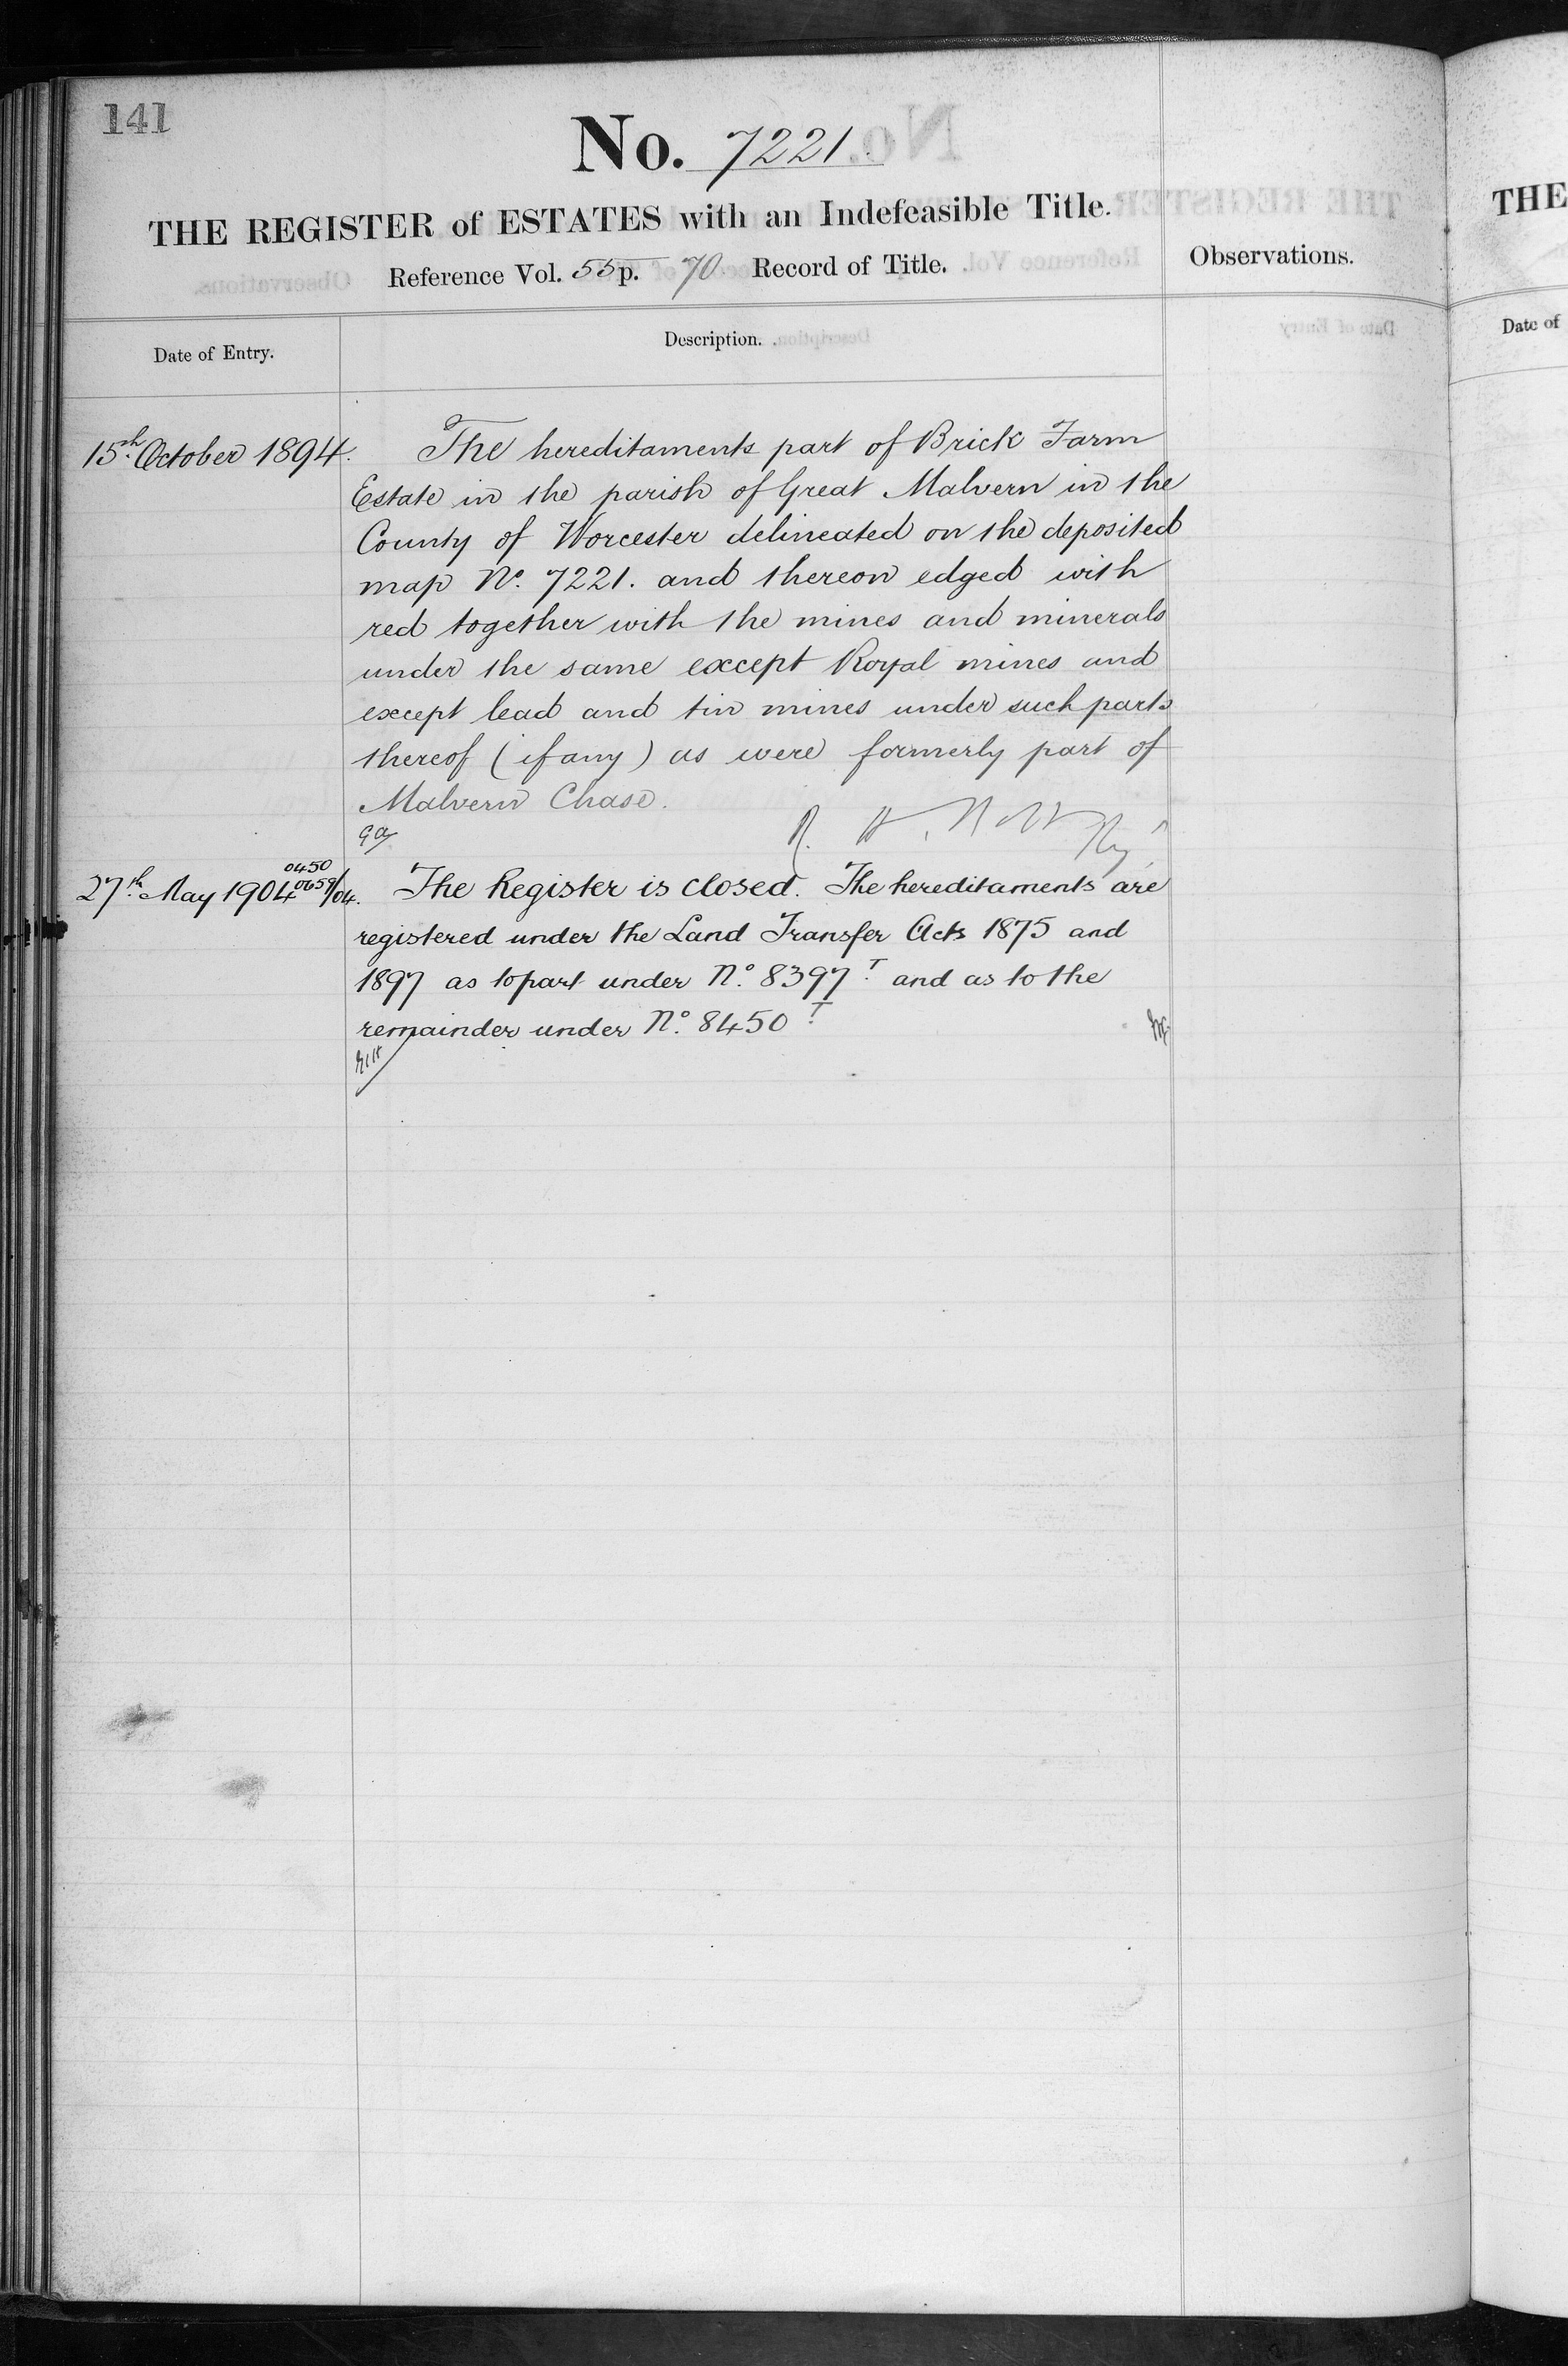 141
No. 7221.
THE REGISTER of ESTATES with an Indefeasible Title.
Reference Vol. 55 p. 70 Record of Title.
Observations.
Date of Entry.
Description.
15th October 1894.
The hereditaments part of Brick Farm
Estate in the parish of Great Malvern in the
County of Worcester delineated on the deposited
map No. 7221. and thereon edged with
red together with the mines and minerals
under the same except Royal mines and
except lead and tin mines under such parts
thereof (if any) as were formerly part of
Malvern Chase.
R. H. Holt Regr
27th May 1904 0450 0659/04.
The Register is closed. The hereditaments are
registered under the Land Transfer Acts 1875 and
1897 as to part under No. 8397 T. and as to the
remainder under No. 8450 T.
THE
Date of